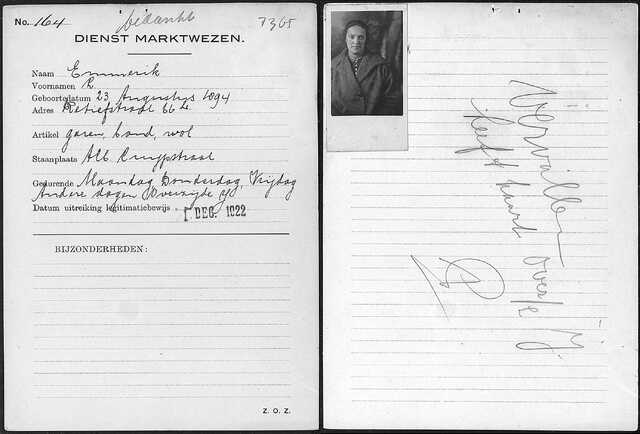 No. 164
bedankt
7365
DIENST MARKTWEZEN.
Naam Emmerik
Voornamen R
Geboortedatum 23 Augustus 1894
Adres Retiefstraat 66
Artikel garen, band, wol
Staanplaats Alb. Cuypstraat
Gedurende Maandag Donderdag, Vrijdag
Andere dagen Overzijde
Datum uitreiking legitimatiebewijs 1 DEC. 1922
BIJZONDERHEDEN:
Z. O. Z.
Vervallen
heeft kaart over/e